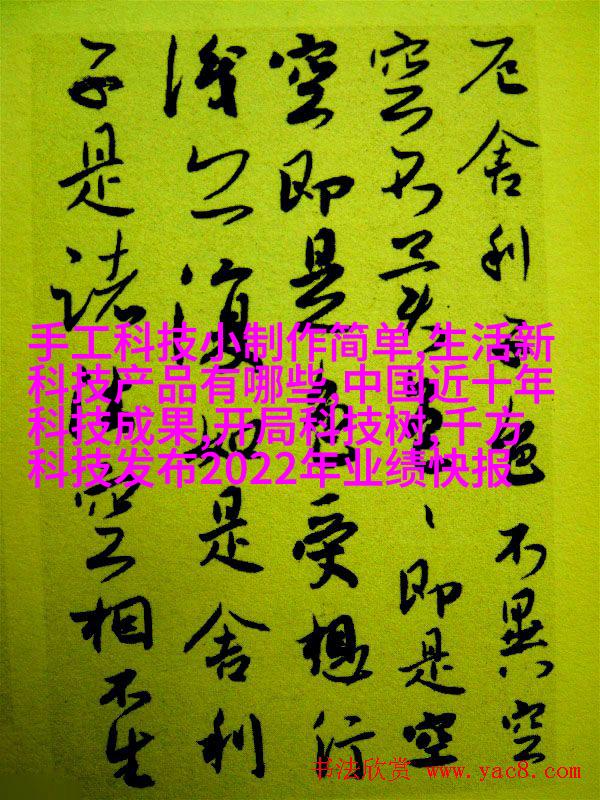 厄舍利子色不異空
空不異色、即是空
空即是色受想行
識亦復如是舍利
子是諸法空相不生
手工科技小制作简单,生活新
科技产品有哪些,中国近十年
科技成果,开局科技树,千方
科技发布2022年业绩快报
书法欣赏 www.yac8.com